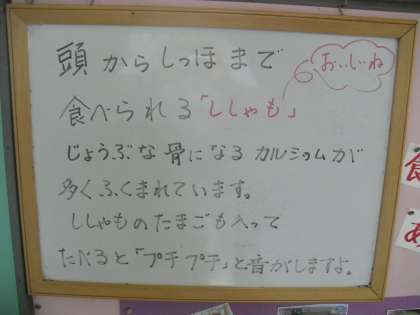 頭からしっぽまで
おいしいね
食べられる「ししゃも」
じょうぶな骨になるカルシウムが
多くふくまれています。
ししゃものたまごも入って
たべると「プチプチ」と音がしますよ。
食
あ